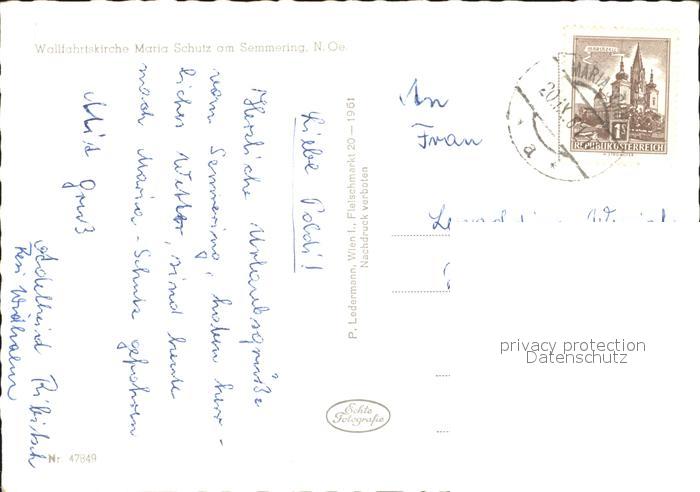 Wallfahrtskirche Maria Schutz am Semmering, N. Oe.
Liebe Poldi!
Herzliche Urlaubsgrüße
vom Semmering, haben herr-
liches Wetter, sind heute
nach Maria-Schutz gefahren
Mit Gruß
Adelheid
Nr. 47849
P. Ledermann, Wien I., Fleischmarkt 20 — 1961
Nachdruck verboten
Echte
Fotografie
An
Frau
MARIAZELL
1S
REPUBLIK ÖSTERREICH
MARIA
20.IX.62
a
privacy protection
Datenschutz